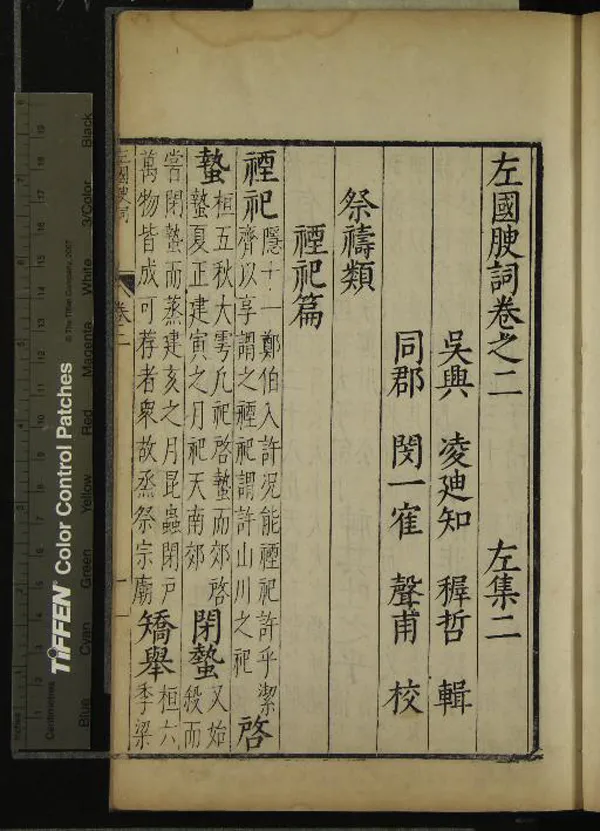 左國腴詞卷之二 左集二
吳興 凌迪知 穉哲 輯
同郡 閔一寉 聲甫 校
祭禱類
禋祀篇
禋祀 隱十一鄭伯入許況能禋祀許乎潔
齊以享謂之禋祀謂許山川之祀 啓
蟄 桓五秋大雩凡祀啓蟄而郊啓
蟄夏正建寅之月祀天南郊 閉蟄 又始
殺而
嘗閉蟄而蒸建亥之月昆蟲閉戶
萬物皆成可荐者衆故烝祭宗廟 矯舉 桓六
季梁
左國腴詞 卷二 一
TIFFEN Color Control Patches
© The Tiffen Company, 2007
Centimetres
Blue Cyan Green Yellow Red Magenta White 3/Color Black